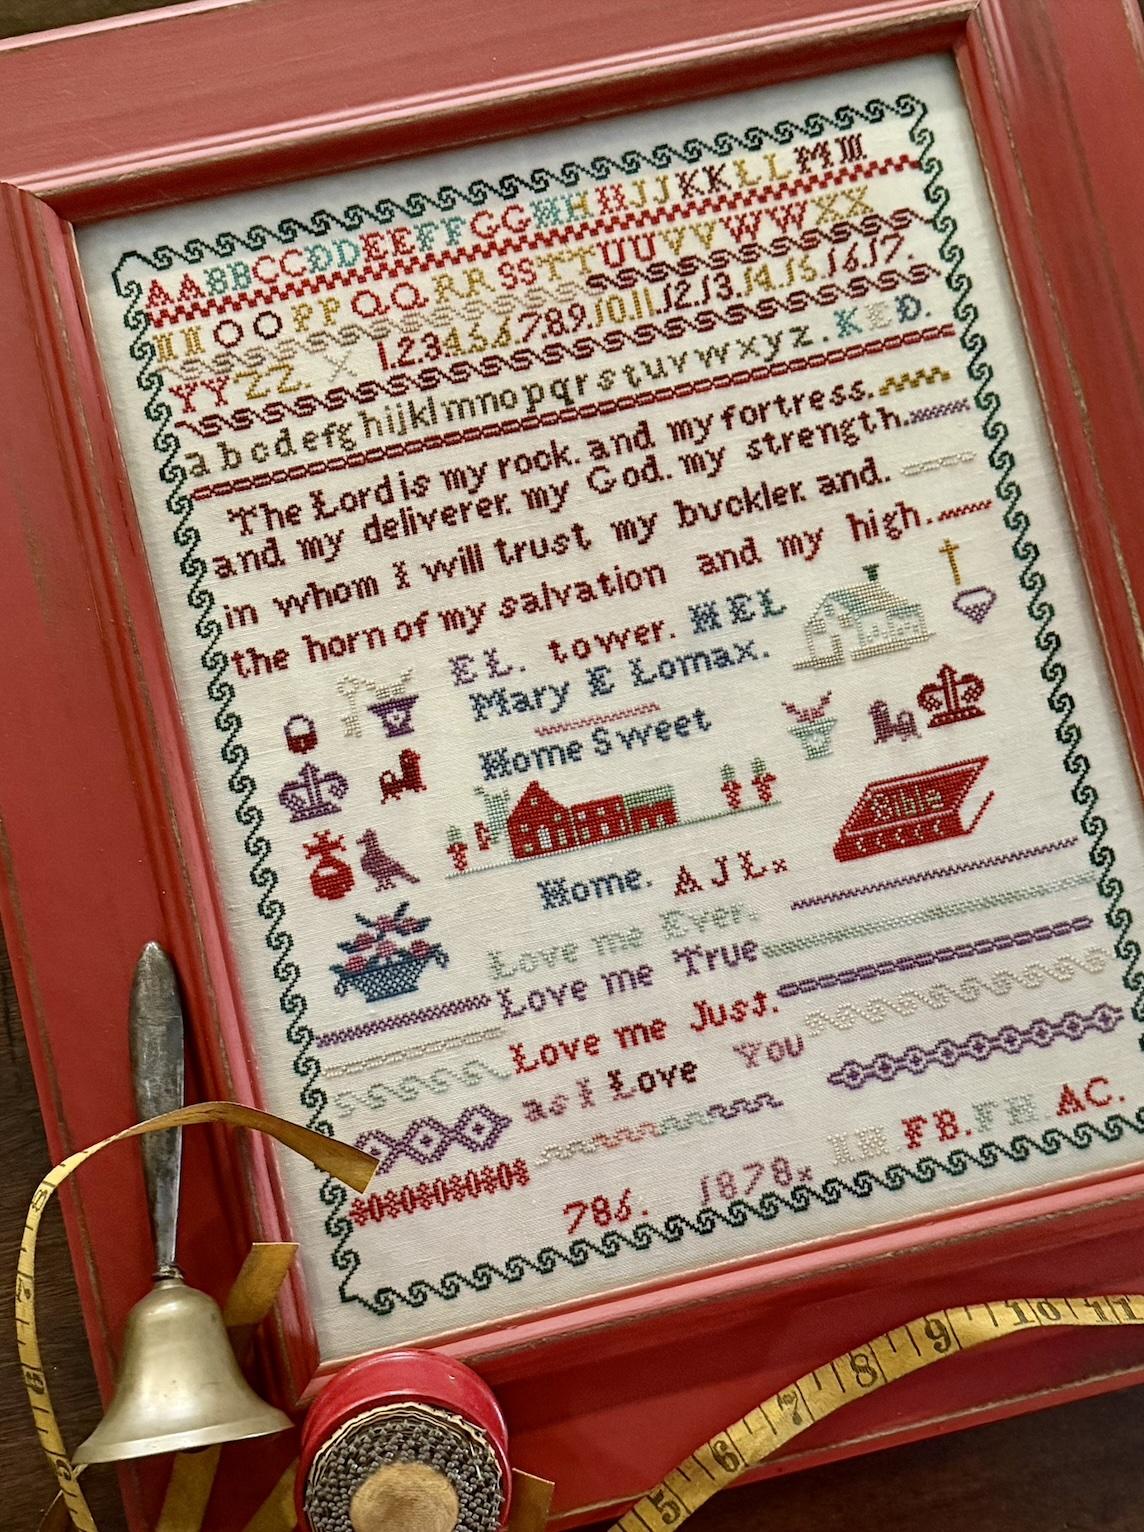 AABBCCDDEEFFGGHHIIJJKKLLMM
NNOOPPQQRRSSTTUUVVWWXX
YYZZ. X 1.2.3.4.6.6.7.8.9.10.11.12.13.14.15.16.17.
abcdefghijklmnopqrstuvwxyz. KED.
The Lord is my rock. and my fortress.
and my deliverer. my God. my strength.
in whom I will trust my buckler. and.
the horn of my salvation and my high.
EL. tower. HEL
Mary E Lomax.
Home Sweet
Bible
Home. AJLx
Love me Ever.
Love me True
Love me Just.
as I Love You
FB. FH. AC.
786. 1878x
5 6 7 8 9 10 11